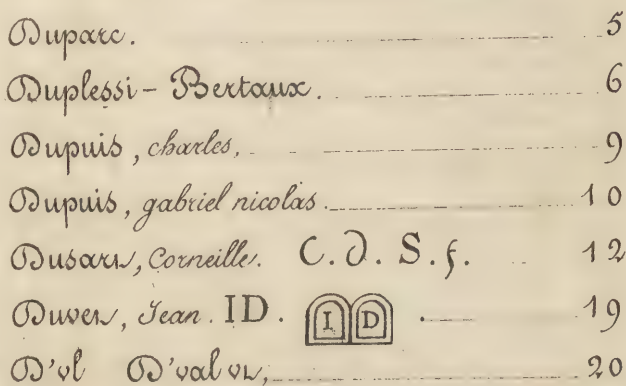 Duparc. 5
Duplessi-Bertaux. 6
Dupuis, charles, 9
Dupuis, gabriel nicolas. 10
Dusart, Corneille. C. D. S. f. 12
Duvet, Jean. ID. ID. 19
D'vl D'val vn, 20